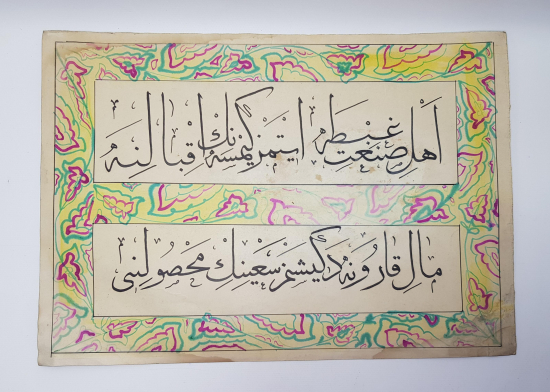 اهل صنعت غبطه ايتمز كيمسه نك اقبالنه
مال قارونه دكيشمز سعينك محصولنى